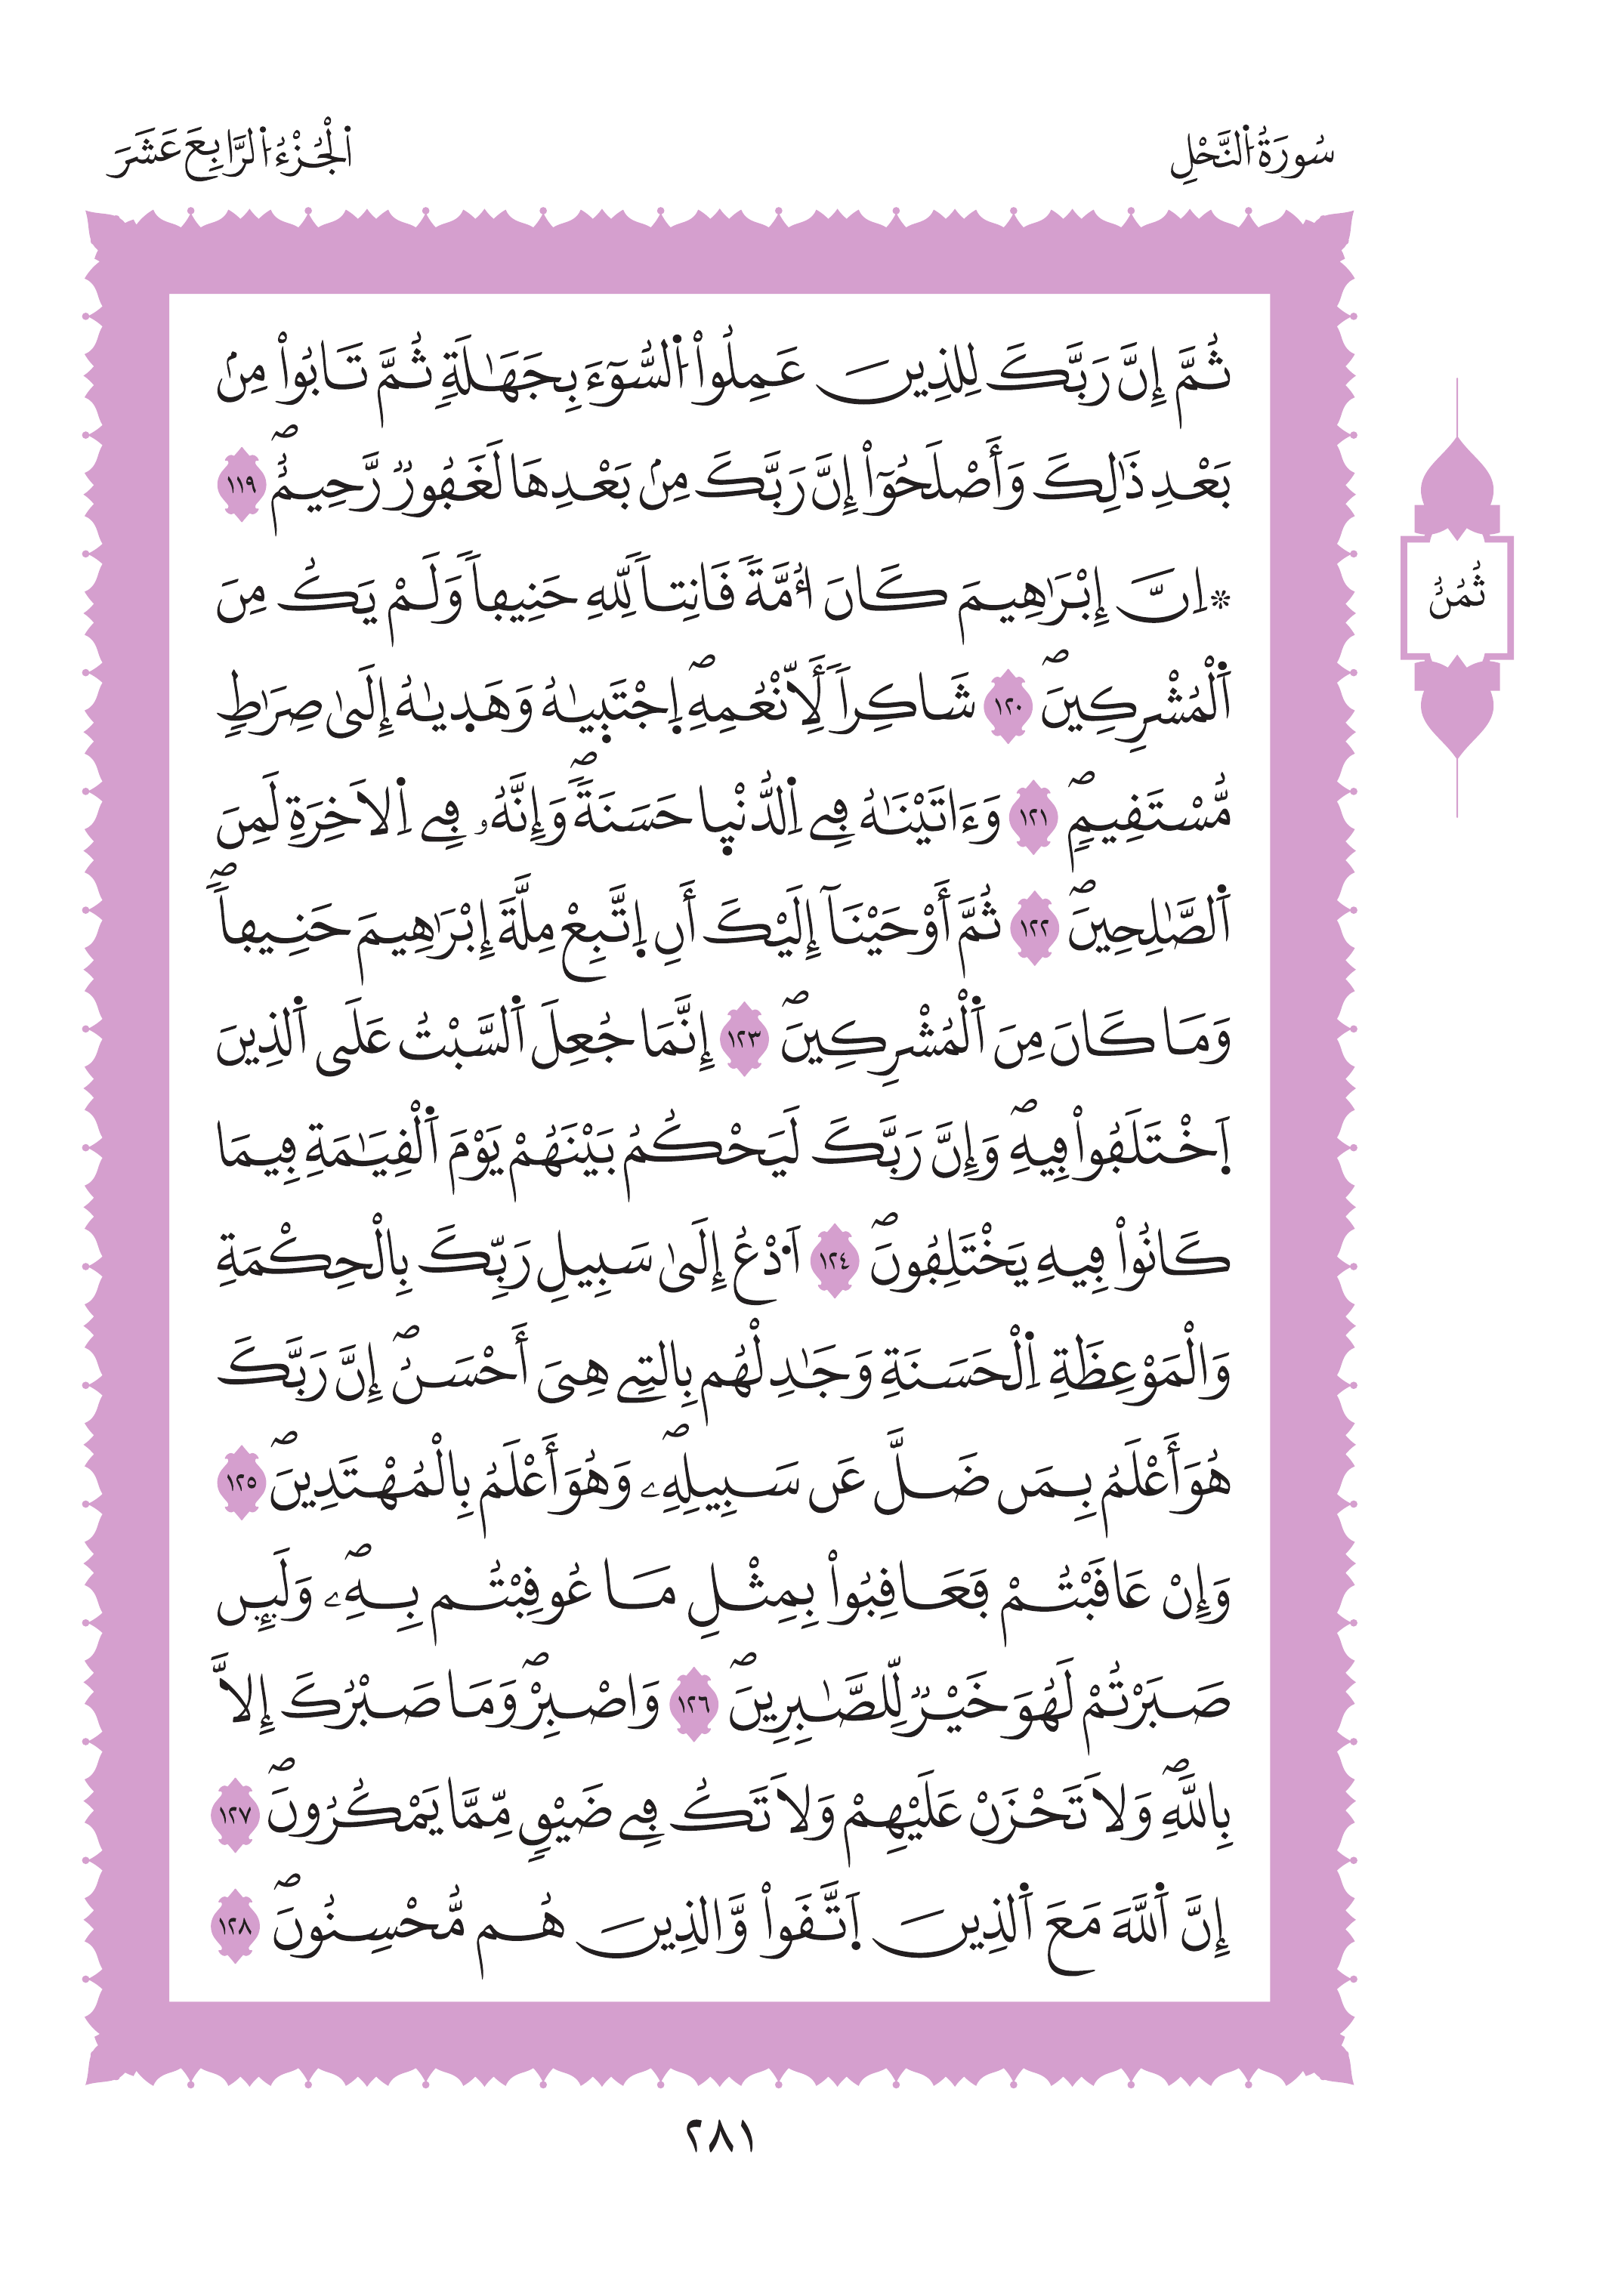 سُورَةُ اُ۬لنَّحْلِ
اَ۬لْجُزْءُ اُ۬لرَّابِعَ عَشَرَ
ثُمَّ إِنَّ رَبَّكَ لِلذِينَ عَمِلُواْ اُ۬لسُّوٓءَ بِجَهَٰلَةٖ ثُمَّ تَابُواْ مِنۢ
بَعْدِ ذَٰلِكَ وَأَصْلَحُوٓاْ إِنَّ رَبَّكَ مِنۢ بَعْدِهَا لَغَفُورٞ رَّحِيمٌۖ ١١٩
۞اِنَّ إِبْرَٰهِيمَ كَانَ أُمَّةٗ قَانِتاٗ لِّلهِ حَنِيفاٗ وَلَمْ يَكُ مِنَ
اَ۬لْمُشْرِكِينَۖ ١٢٠ شَاكِراٗ لَّأِنْعُمِهِۖ اِ۪جْتَب۪يٰهُ وَهَد۪يٰهُ إِلَىٰ صِرَٰطٖ
مُّسْتَقِيمٖۖ ١٢١ وَءَاتَيْنَٰهُ فِے اِ۬لدُّنْي۪ا حَسَنَةٗۖ وَإِنَّهُۥ فِے اِ۬لَاخِرَةِ لَمِنَ
اَ۬لصَّٰلِحِينَۖ ١٢٢ ثُمَّ أَوْحَيْنَآ إِلَيْكَ أَنِ اِ۪تَّبِعْ مِلَّةَ إِبْرَٰهِيمَ حَنِيفاٗۖ
وَمَا كَانَ مِنَ اَ۬لْمُشْرِكِينَۖ ١٢٣ إِنَّمَا جُعِلَ اَ۬لسَّبْتُ عَلَى اَ۬لذِينَ
اَ۪خْتَلَفُواْ فِيهِۖ وَإِنَّ رَبَّكَ لَيَحْكُمُ بَيْنَهُمْ يَوْمَ اَ۬لْقِيَٰمَةِ فِيمَا
كَانُواْ فِيهِ يَخْتَلِفُونَۖ ١٢٤ اَ۟دْعُ إِلَىٰ سَبِيلِ رَبِّكَ بِالْحِكْمَةِ
وَالْمَوْعِظَةِ اِ۬لْحَسَنَةِ وَجَٰدِلْهُم بِالتِے هِيَ أَحْسَنُۖ إِنَّ رَبَّكَ
هُوَ أَعْلَمُ بِمَن ضَلَّ عَن سَبِيلِهِۦۖ وَهُوَ أَعْلَمُ بِالْمُهْتَدِينَۖ ١٢٥
وَإِنْ عَاقَبْتُمْ فَعَاقِبُواْ بِمِثْلِ مَا عُوقِبْتُم بِهِۦۖ وَلَئِن
صَبَرْتُمْ لَهُوَ خَيْرٞ لِّلصَّٰبِرِينَۖ ١٢٦ وَاصْبِرْۖ وَمَا صَبْرُكَ إِلَّا
بِاللَّهِۖ وَلَا تَحْزَنْ عَلَيْهِمْ وَلَا تَكُ فِے ضَيْقٖ مِّمَّا يَمْكُرُونَۖ ١٢٧
إِنَّ اَ۬للَّهَ مَعَ اَ۬لذِينَ اَ۪تَّقَواْ وَّالذِينَ هُم مُّحْسِنُونَۖ ١٢٨
ثُمُنٌ
٢٨١